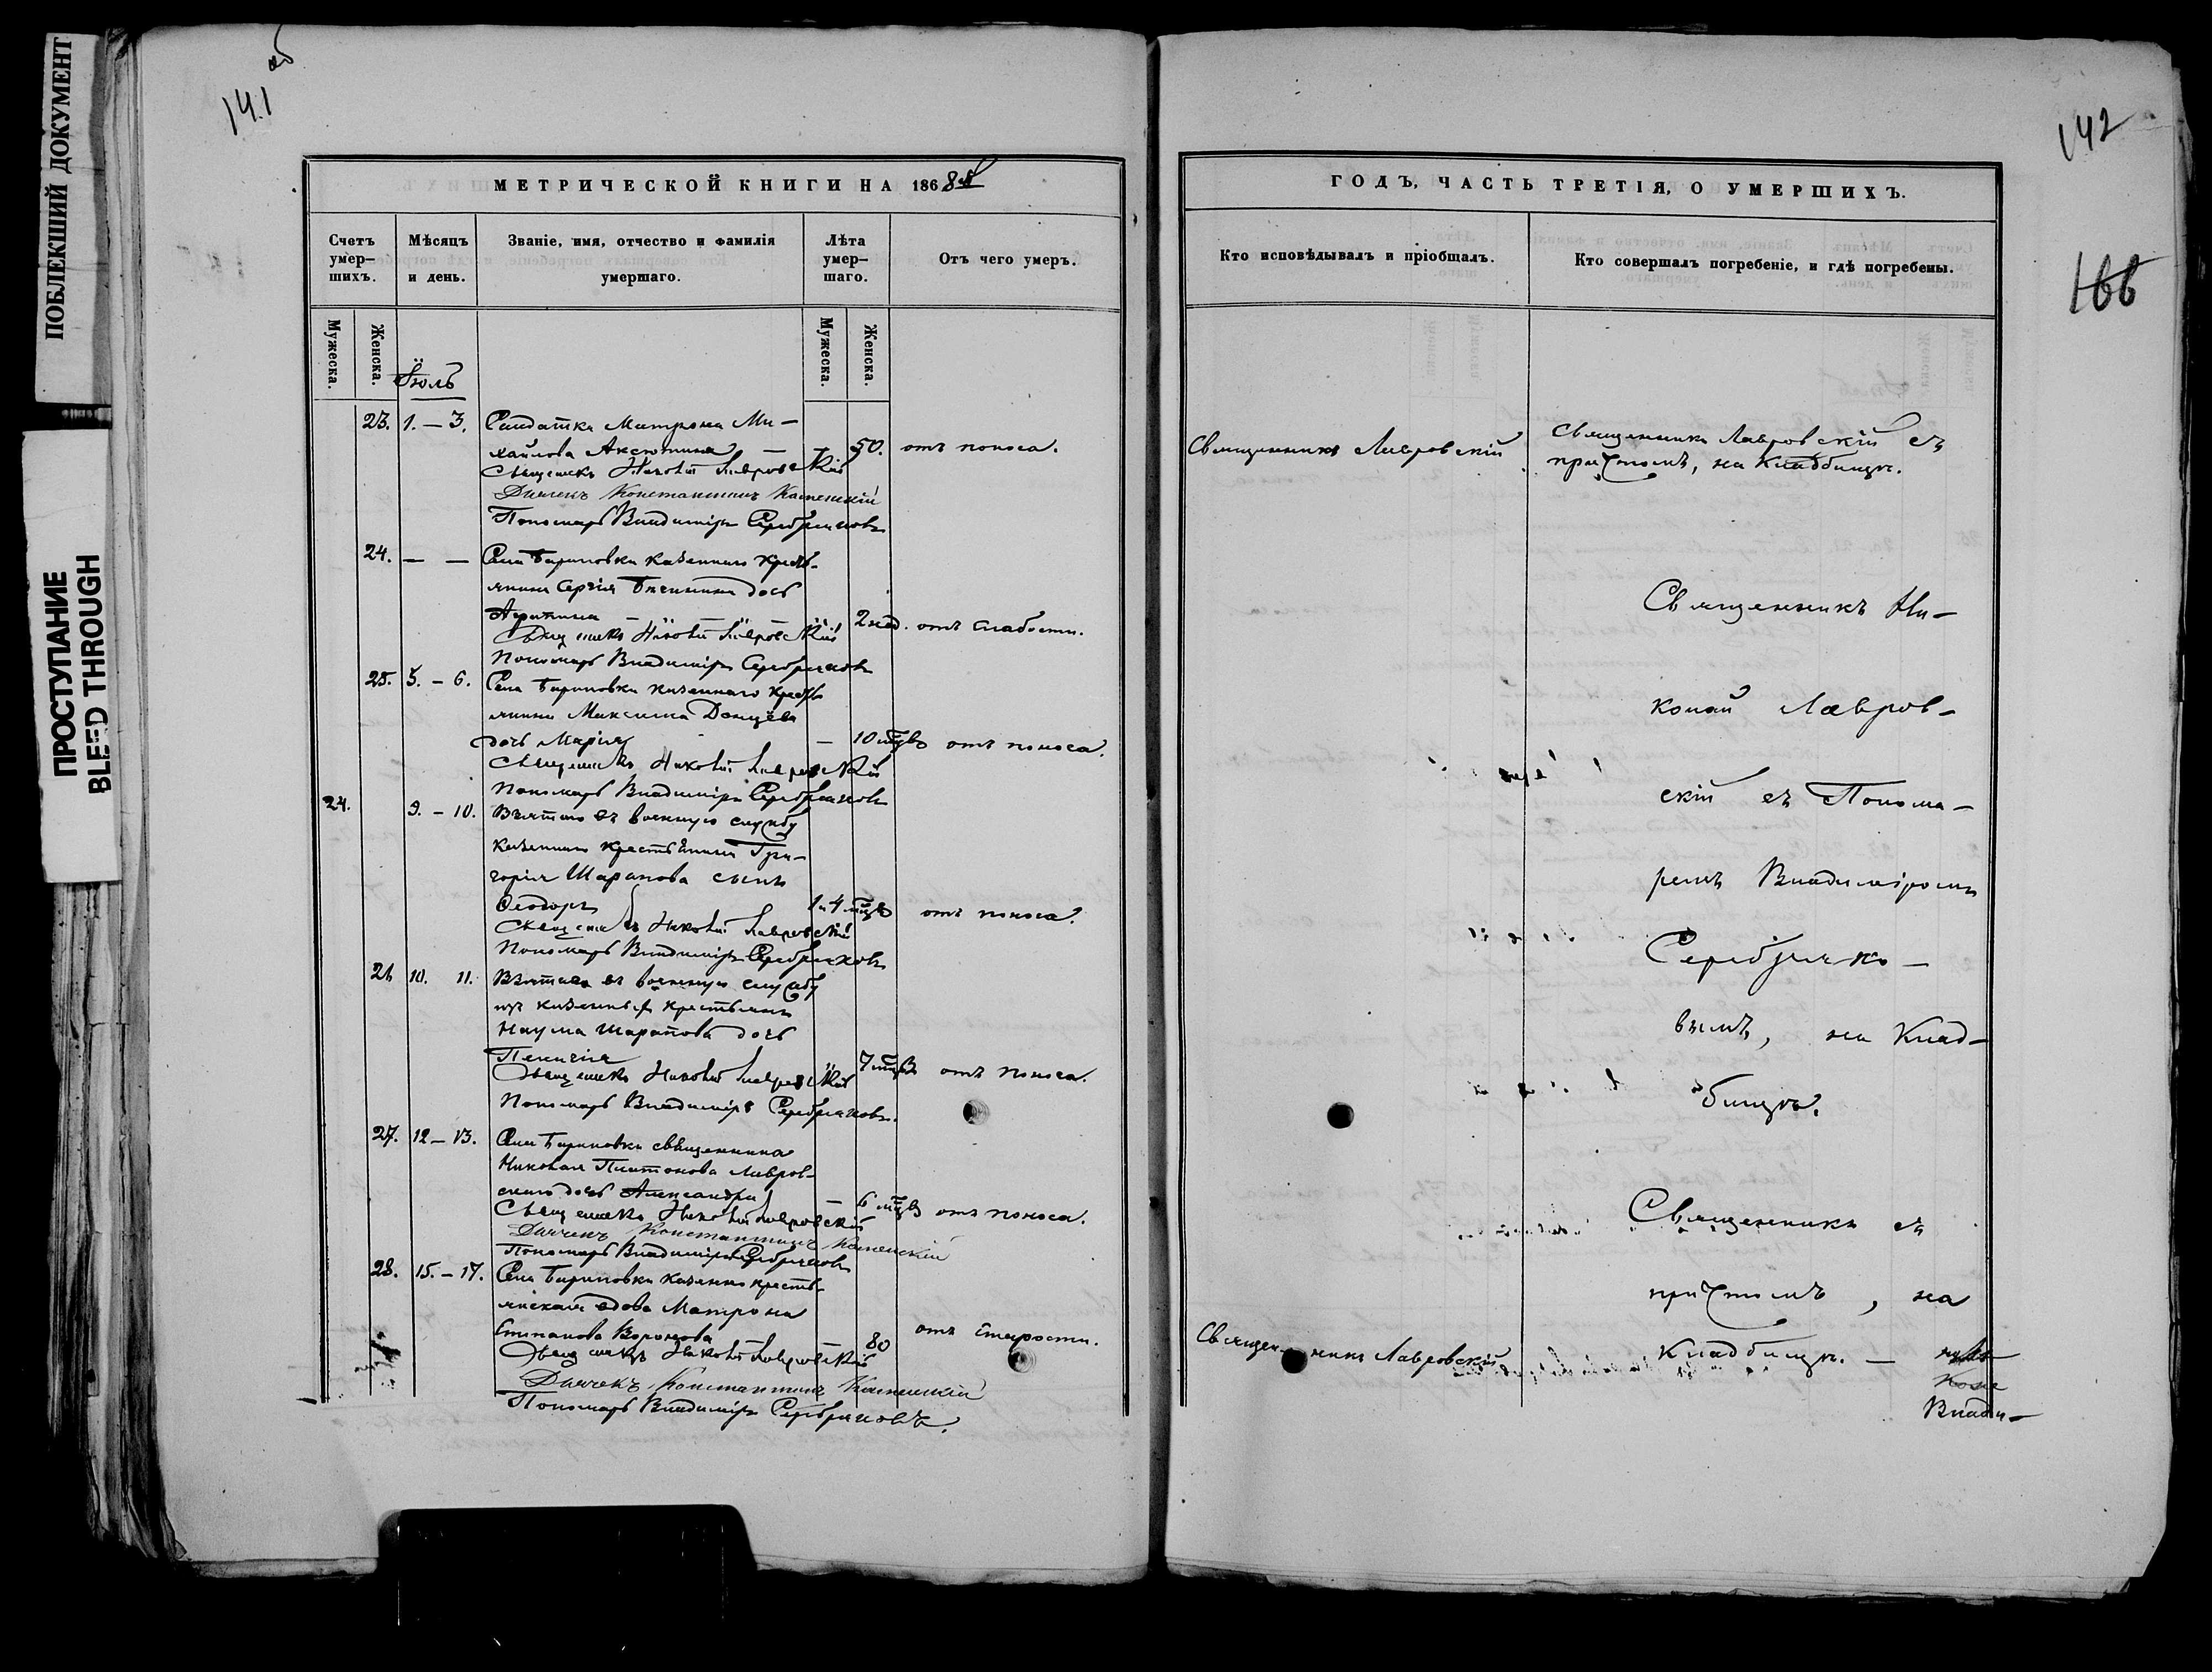 ПОБЛЕКШИЙ ДОКУМЕНТ
ПРОСТУПАНИЕ
BLEED THROUGH
141 об
МЕТРИЧЕСКОЙ КНИГИ НА 1868й
Счетъ умер-шихъ.
Мѣсяцъ и день.
Званіе, имя, отчество и фамилія умершаго.
Лѣта умер-шаго.
Отъ чего умеръ.
Мужеска.
Женска.
Мужеска.
Женска.
Іюль
23. 1. – 3. Солдатка Матрона Ми-
хайлова Аксютина — — 50. отъ поноса.
Священникъ Николай Лавровскій
Дьячекъ Константинъ Каменскій
Пономарь Владиміръ Серебряковъ
24. — — Села Бариновки казеннаго кресть-
янина Сергія дочь
— 2 нед. отъ слабости.
Священникъ Николай Лавровскій
Пономарь Владиміръ Серебряковъ
25. 5. – 6. Села Бариновки казеннаго кресть
янина Максима Донцова
дочь Марія — 10 мцвъ отъ поноса.
Священникъ Николай Лавровскій
Пономарь Владиміръ Серебряковъ
24. 9. – 10. Взятого въ военную службу
казеннаго крестьянина Гри-
горія Шарапова сынъ
Ѳеодоръ 1 и 4 мцв отъ поноса.
Священникъ Николай Лавровскій
Пономарь Владиміръ Серебряковъ
26 10. 11. Взятаго въ военную службу
изъ казенныхъ крестьянъ
Наума Шарапова дочь
Пелагія 7 мцвъ отъ поноса.
Священникъ Николай Лавровскій
Пономарь Владиміръ Серебряковъ.
27. 12 – 13. Села Бариновки священника
Николая Платонова Лавров-
скаго дочь Александра — 6 мцвъ отъ поноса.
Священникъ Николай Лавровскій
Дьячекъ Константинъ Каменскій
Пономарь Владиміръ Серебряковъ
28. 15. – 17. Села Бариновки казенно кресть-
янская вдова Матрона
Степанова Воронова — 80 отъ старости.
Священникъ Николай Лавровскій
Дьячекъ Константинъ Каменскій
Пономарь Владиміръ Серебряковъ.
142
166
ГОДЪ, ЧАСТЬ ТРЕТІЯ, О УМЕРШИХЪ.
Кто исповѣдывалъ и пріобщалъ.
Кто совершалъ погребеніе, и гдѣ погребены.
Священникъ Лавровскій
Священникъ Лавровскій съ
причтомъ, на кладбищѣ.
Священникъ Ни-
колай Лавров-
скій съ Понома-
ремъ Владиміромъ
Серебряко-
вымъ, на Клад-
бищѣ.
Священникъ съ
причтомъ, на
Кладбищѣ. —
Священникъ Лавровскій
Влади-